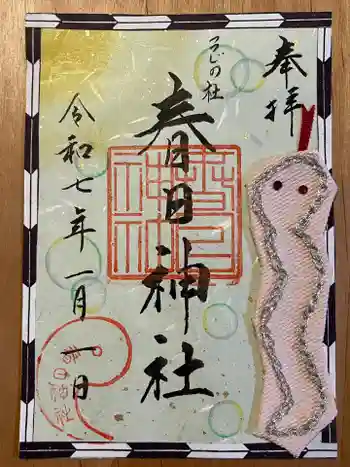 奉拝
ふじの社
春日神社
令和七年一月一日
春日神社